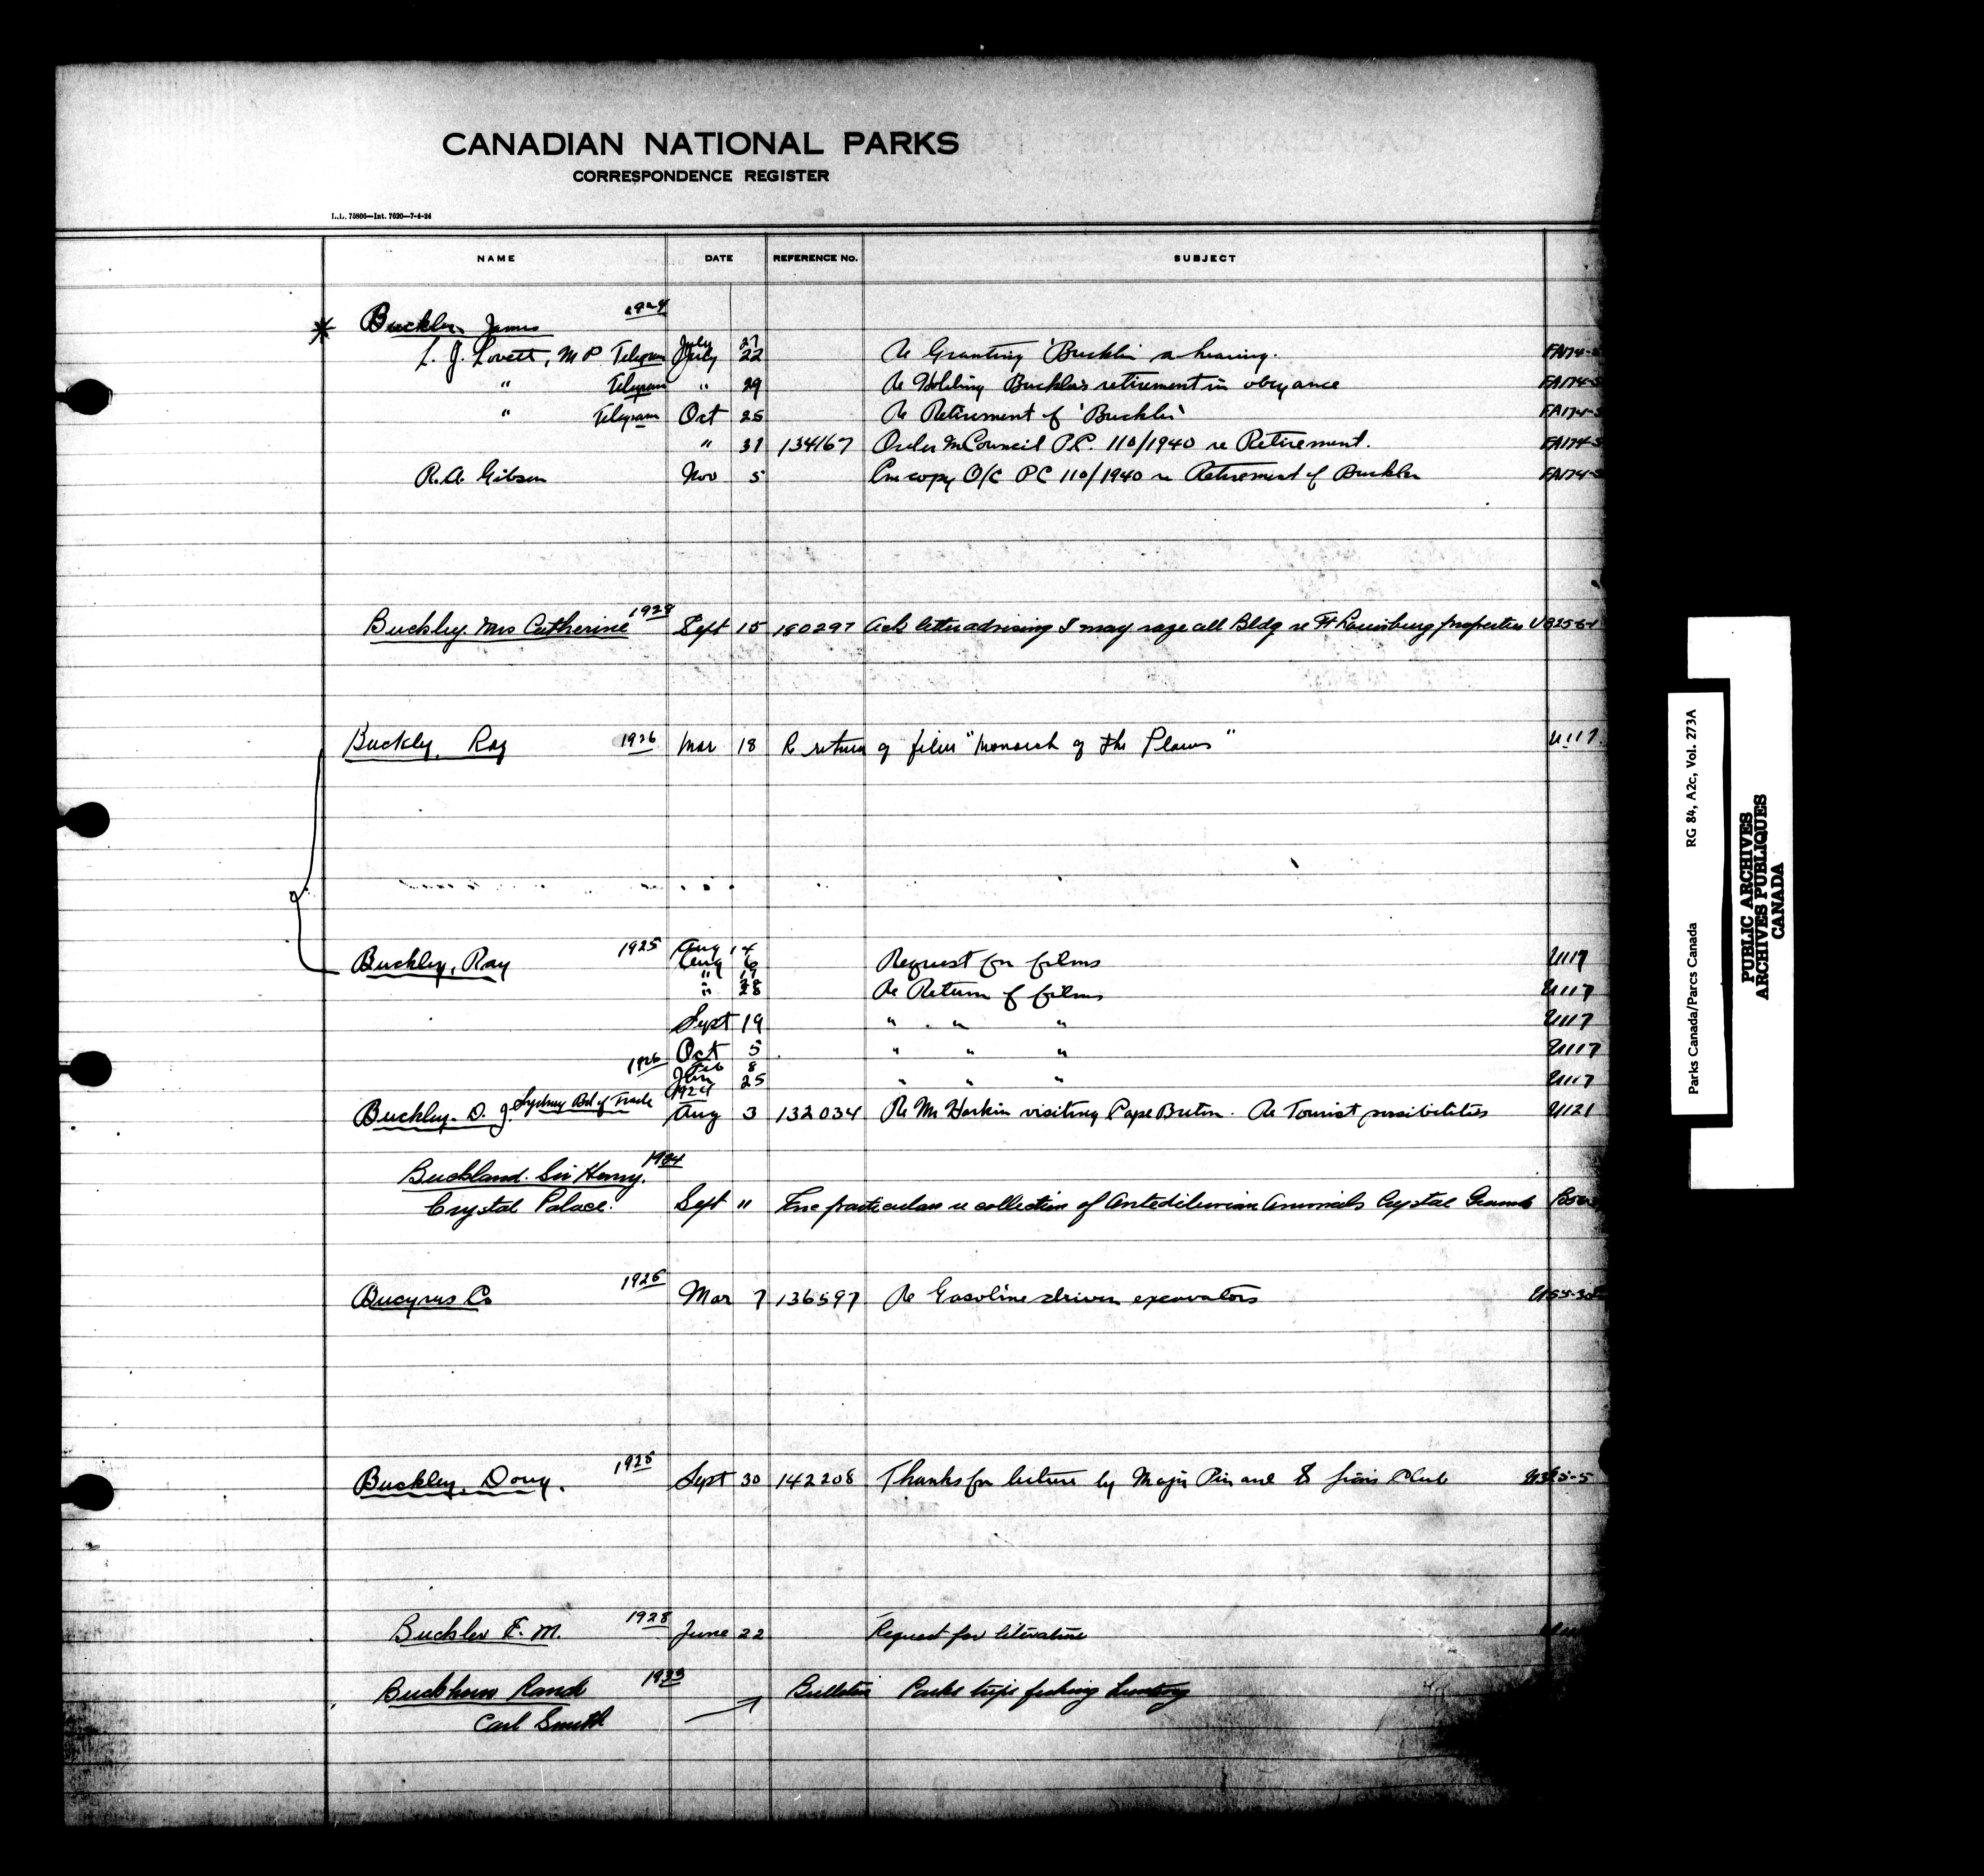 CANADIAN NATIONAL PARKS
CORRESPONDENCE REGISTER
L.L. 75806—Int. 7620—7-4-24
NAME DATE REFERENCE No. SUBJECT
Buckler James 1924
L. J. Lovett, M P Telegram July 27 July 22 Re Granting Buckler a hearing. FA174-
" Telegram " 29 Re Holding Buckler's retirement in obeyance FA174-
" Telegram Oct 25 Re Retirement of 'Buckler' FA174-
" 31 134167 Order in Council P.C. 110/1940 re Retirement. FA174-
R. A. Gibson Nov 5 Enc copy O/C PC 110/1940 re Retirement of Buckler FA174-
Buckley Mrs Catherine 1928 Sept 15 180297 Ack letter advising I may raze all Bldg re Ft Louisburg properties
Buckly, Ray 1926 Mar 18 Re return of film "Monarch of the Plains" U117.
Buckley, Ray 1925 Aug 14
Aug 6 Request for films U117
" 19
" 28 Re Return of films U117
Sept 19 " " " U117
Oct 5 " " " U117
1926 Feb 8
Jan 25 " " " U117
Buckley. D. J. Sydney Bd of Trade 1924 Aug 3 132034 Re Mr Harkin visiting Cape Breton. Re Tourist possibilities U121
Buckland. Sir Henry. 1934
Crystal Palace. Sept 11 Enc particulars re collection of Antediluvian Animals Crystal Grounds
Bucyrus Co 1925 Mar 7 136597 Re Gasoline driven excavators U55-30
Buckley, Doug. 1925 Sept 30 142208 Thanks for lecture by Major Pinard to Lions Club
Buckler F. M. 1928 June 22 Request for literature
Buckhorn Ranch 1933 Bulletin Parks trips fishing hunting
Carl Smith
Parks Canada/Parcs Canada RG 84, A2c, Vol. 273A
PUBLIC ARCHIVES
ARCHIVES PUBLIQUES
CANADA